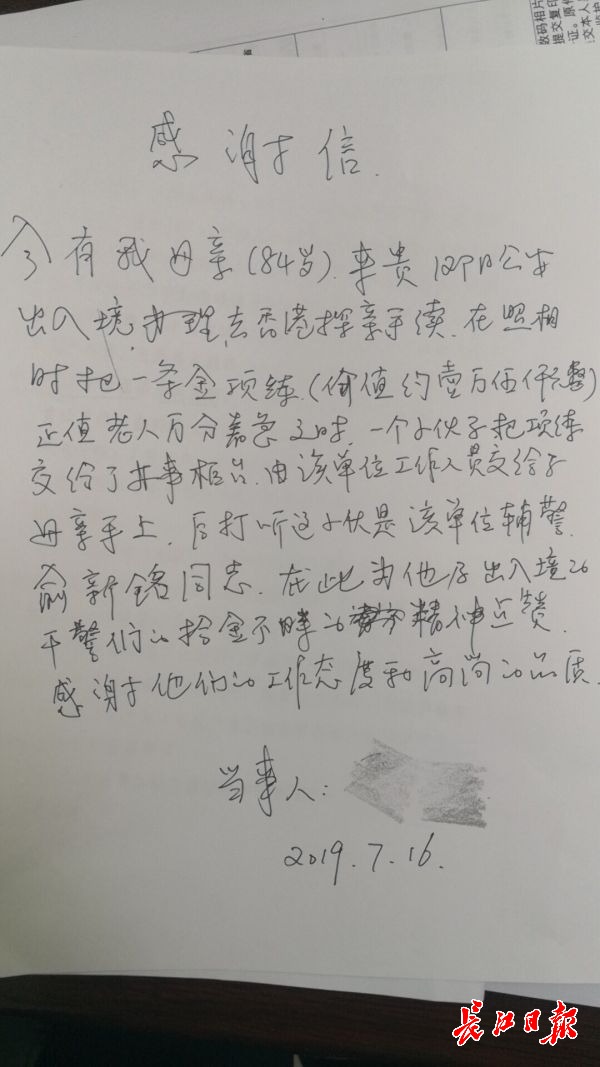 数码相片
提交复印
证。原件
交本人
感谢信.
今有我母亲(84岁).来贵部门公安
出入境,办理去香港探亲手续.在照相
时把一条金项练.(价值约壹万伍仟元整)
正值老人万分着急之时.一个小伙子把项练
交给了办事柜台.由该单位工作人员交给了
母亲手上.后打听这小伙是该单位辅警.
俞新铭同志.在此为他及出入境的
干警们的拾金不昧的精神点赞.
感谢他们的工作态度和高尚的品质.
当事人:
2019.7.16.
长江日报